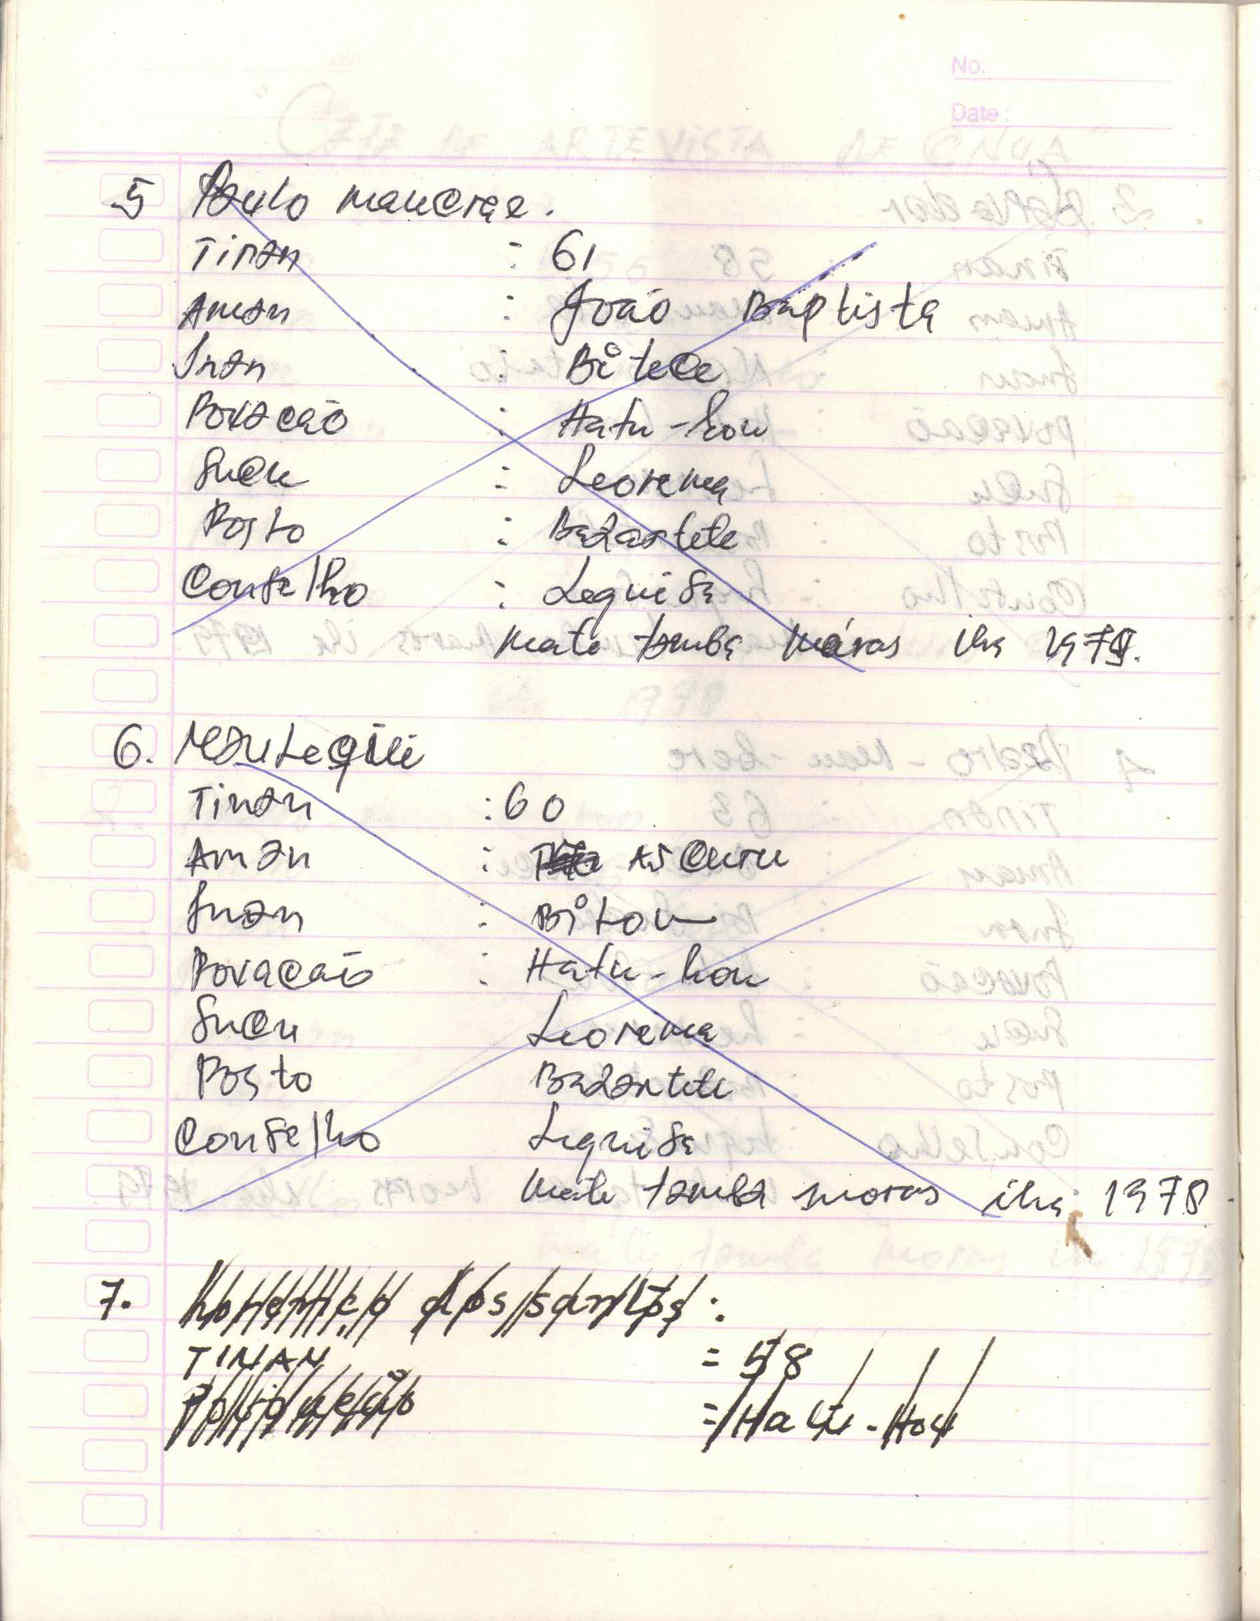 No.
Date:
5 Paulo maucrae.
Tinan : 61
Aman : João Baptista
Inan : Bi tece
Povacão : Hatu-hou
Sucu : Leorema
Posto : Bazartete
Conselho : Lequisa
mate tamba moras iha 1979.
6. Mauleqili
Tinan : 60
Aman : Ascuru
Inan : Bi tou
Povacaõ : Hatu-hou
Sucu Leorema
Posto Bazartete
Conselho Lequisa
mate tamba moras iha 1978
7. dos santos :
TINAN = 58
Povoação = Hatu-Hou